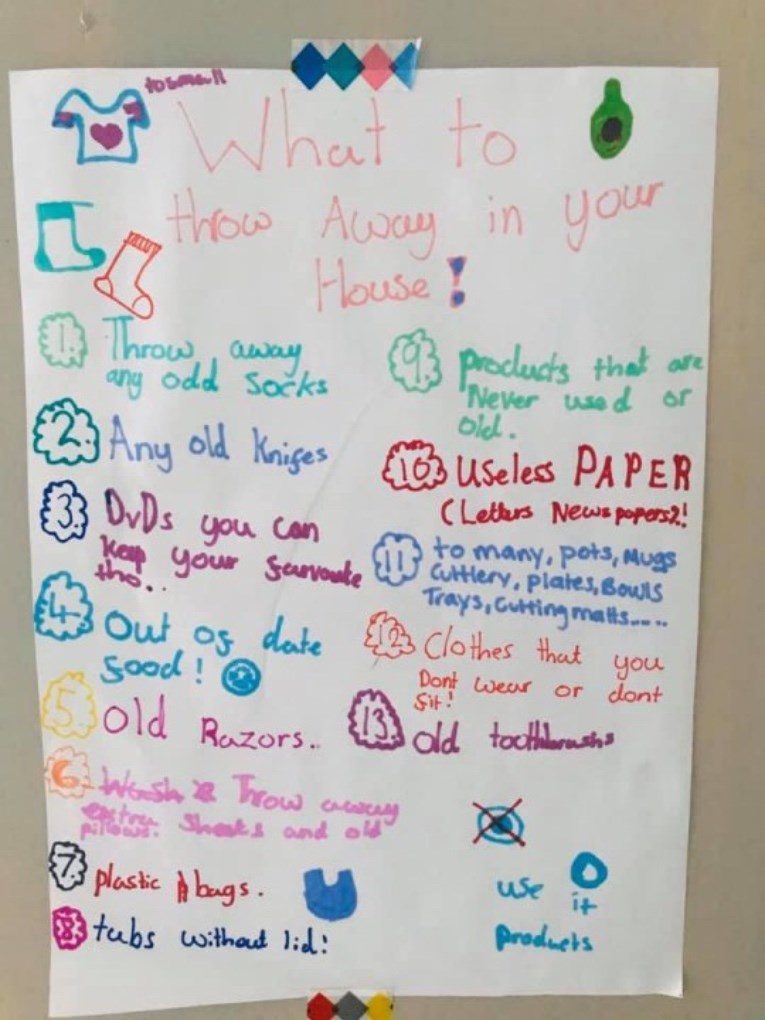 to small
What to
throw Away in your
House!
1. Throw away
any odd socks
2. Any old Knifes
3. DvDs you can
keep your farvoute
tho..
4. Out of date
food!
5. Old Razors..
6. Wash & Throw away
extra sheets and old
pillows.
7. plastic bags.
8. tubs without lid!
9. products that are
Never used or
old.
10. Useless PAPER
(Letters Newspapers)!
11. to many, pots, Mugs
Cuttlery, plates, Bowls
Trays, Cutting matts.....
12. Clothes that you
Dont wear or dont
fit!
13. old toothbrushs
use it
products